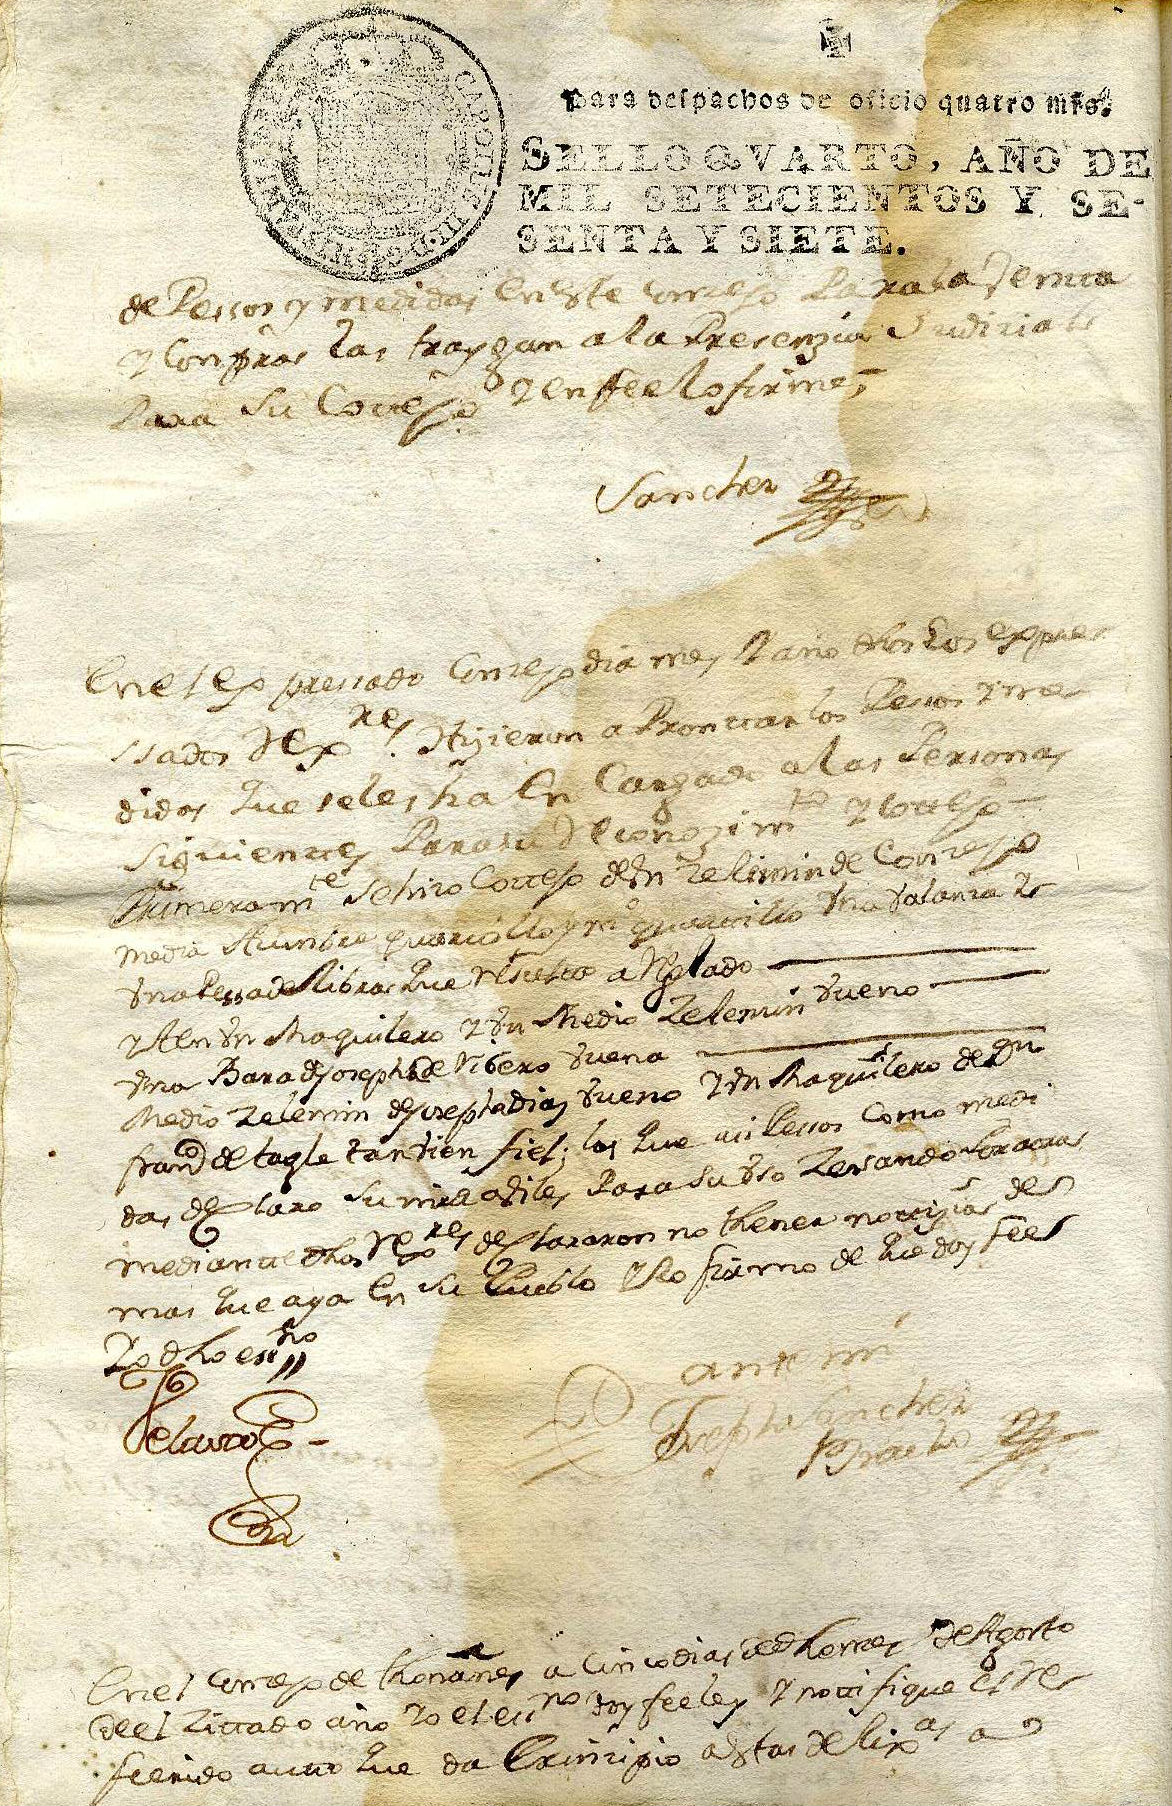 CAROLUS III. D. G.
para despachos de oficio quatro mrs.
SELLO QVARTO, AÑO DE
MIL SETECIENTOS Y SE-
SENTA Y SIETE.
de Pessos y medidas en este Conzejo Para la Vemta
y Compras las traygan a la Presenzia Judizial
Para su Cottejo y en fee lo firme
Sanchez
En el expressado Conzejo dia mes y año dhos los expre
ssados Rexres hizieron aprontar los Pessos y me
didas que se les ha encargado a las Personas
siguientes Para su Reconozimto y Cottejo
Primeramte se hizo Cottejo de un zelimin de Conzejo
media Humbre quartillo y mo quartillo una valanza
una Pessa de libras que resulto arreglado
y tten un Maquilero y un Medio Zelemin vueno
Una Bara de Joseph de Vibero vuena
Medio Zelemin de Joseph diaz vueno y un Maquilero de Dn
franco de tagle tanvien fiel; los que assi Pessos como medi
das declaro su mrd abiles Para su uso
mediante dhos Rexres declararon no thener notizias de
mas que aya en su Pueblo y lo firmo de que doy fee
Yo dho essno
Velarde
ante mi
Joseph Sanchez
En el Conzejo de thoñanes a Cinco dias del dho mes de Agosto
de el zittado año Yo el essno doy fee ley y nottifique el re
ferido autto que da Principio a estas delixas a